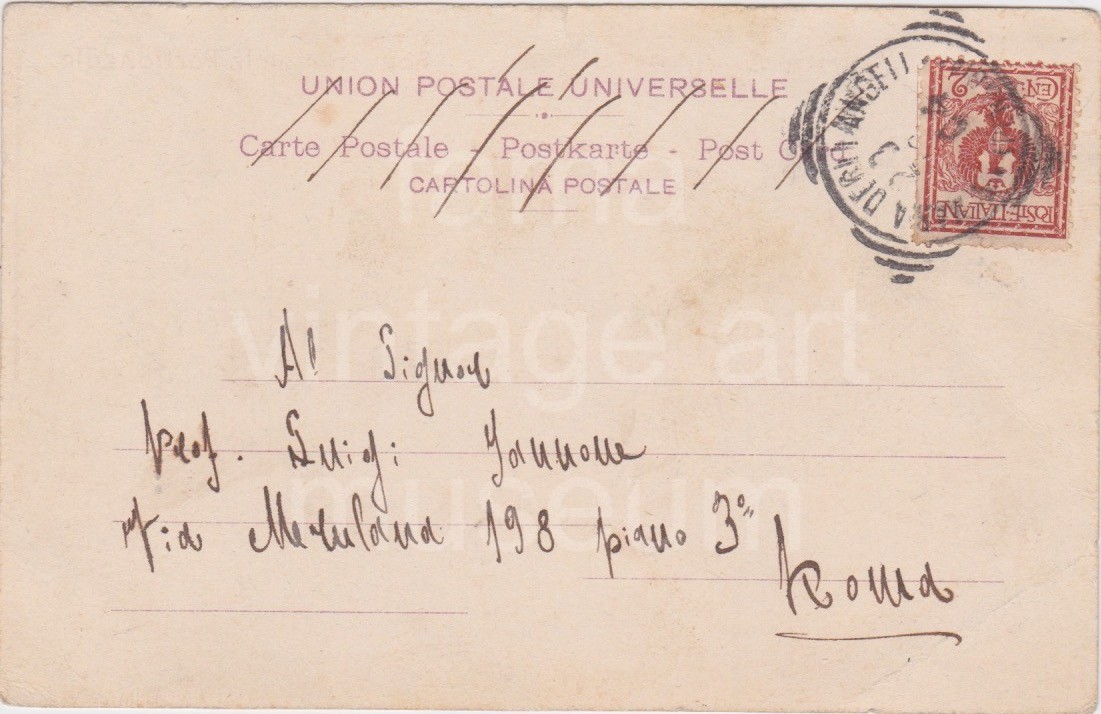 UNION POSTALE UNIVERSELLE
Carte Postale - Postkarte - Post C
CARTOLINA POSTALE
CEN. 2
POSTE ITALIANE
Al Signor
Prof. Luigi Jannone
Via Merulana 198 piano 3°
Roma
roma
vintage art
museum